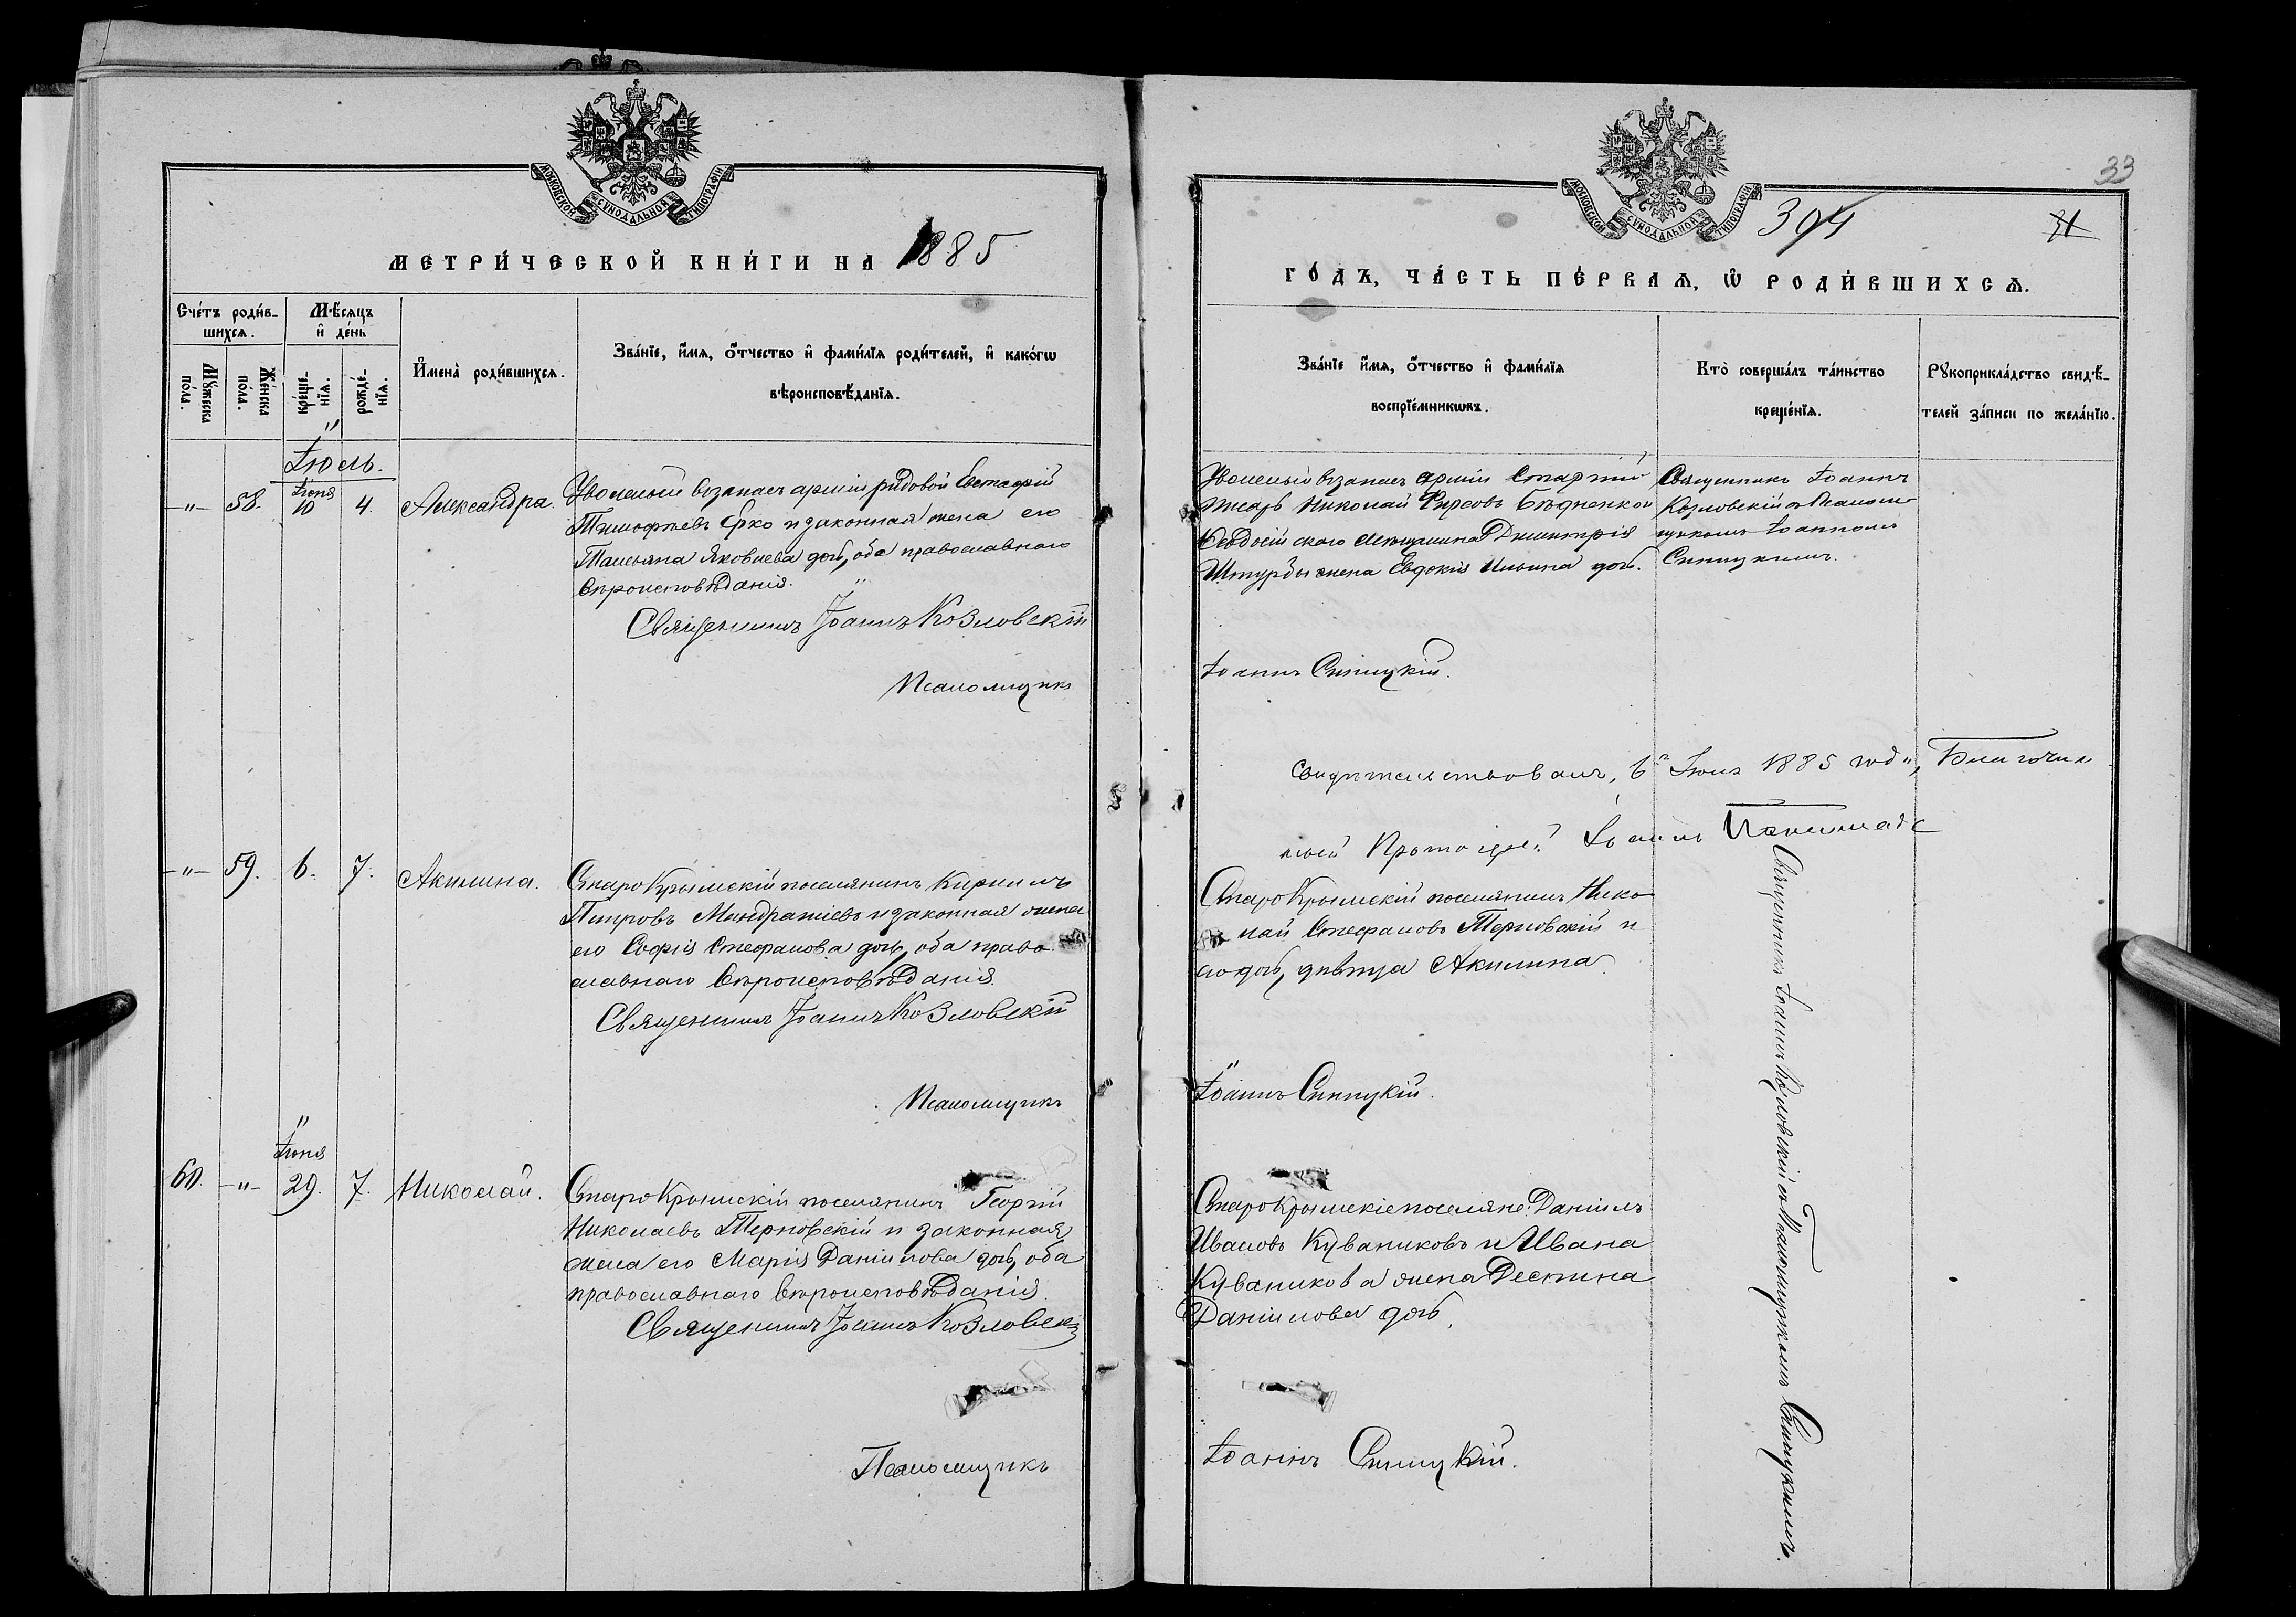 МОСКОВСКОЙ СУНОДАЛЬНОЙ ТИПОГРАФІИ
МЕТРИ́ЧЕСКОЙ КНИ́ГИ НА 1885
Сче́тъ роди́в-
шихся.
Мѣ́сяцъ
и҆ де́нь
Мꙋ́жеска
пола.
Же́нска
пола.
кре́ще-
нїя.
рожде́-
нїя.
И҆мена̀ роди́вшихся.
Зва́нїе, и҆́мя, ѻ҆́тчество и҆ фами́лїя роди́телей, и҆ како́гѡ
вѣроисповѣ́данїя.
Іюль.
-"- 58. Іюня 10 4. Александра.
Уволеный взапасъ арміи рядовой Евстафій
Тимофеевъ Ерко и законная жена его
Татьяна Яковлева дочь, оба православнаго
вѣроисповѣданія.
Священникъ Іоаннъ Козловскій
Псаломщикъ
-"- 59. 6. 7. Акилина.
Старо Крымскій поселянинъ Кириллъ
Петровъ Мандражіевъ и законная жена
его Софія Стефанова дочь, оба право
славнаго вѣроисповѣданія.
Священникъ Іоаннъ Козловскій
Псаломщикъ
Іюня
60. -"- 29. 7. Николай.
Старо Крымскій поселянинъ Георгій
Николаевъ Терновскій и законная
жена его Марія Даніилова дочь, оба
православнаго вѣроисповѣданія.
Священникъ Іоаннъ Козловскій
Псаломщикъ
33
МОСКОВСКОЙ СУНОДАЛЬНОЙ ТИПОГРАФІИ
394
ГО́ДЪ, ЧА́СТЬ ПЕ́РВАЯ, Ѡ҆ РОДИ́ВШИХСЯ.
Зва́нїе и҆́мя, ѻ҆́тчество и҆ фами́лїя
воспрїе́мникѡвъ.
Кто̀ соверша́лъ та́инство
креще́нїя.
Рꙋкоприкла́дство свидѣ́-
телей за́писи по жела́нїю.
Уволеный взапасъ арміи Старшій
писарь Николай Фирсовъ Бѣдненкой
Ѳеодосійскаго мещанина Димитрія
Штурбы жена Евдокія Ильина дочь.
Священникъ Іоаннъ
Козловскій съ Псалом
щикомъ Іоанномъ
Синицкимъ.
Іоаннъ Синицкій.
Свидѣтельствовалъ, 6 Іюля 1885 года, Благочин
ный Протоіерей Іоаннъ
Старо Крымскій поселянинъ Нико
лай Стефановъ Терновскій и
его дочь, дѣвица Акилина.
Священникъ Іоаннъ Козловскій съ Псаломщикомъ Синицкимъ.
Іоаннъ Синицкій.
Старо Крымскіе поселяне: Даніилъ
Ивановъ Куваниковъ и Ивана
Куваникова жена Деспина
Даніилова дочь.
Іоаннъ Синицкій.